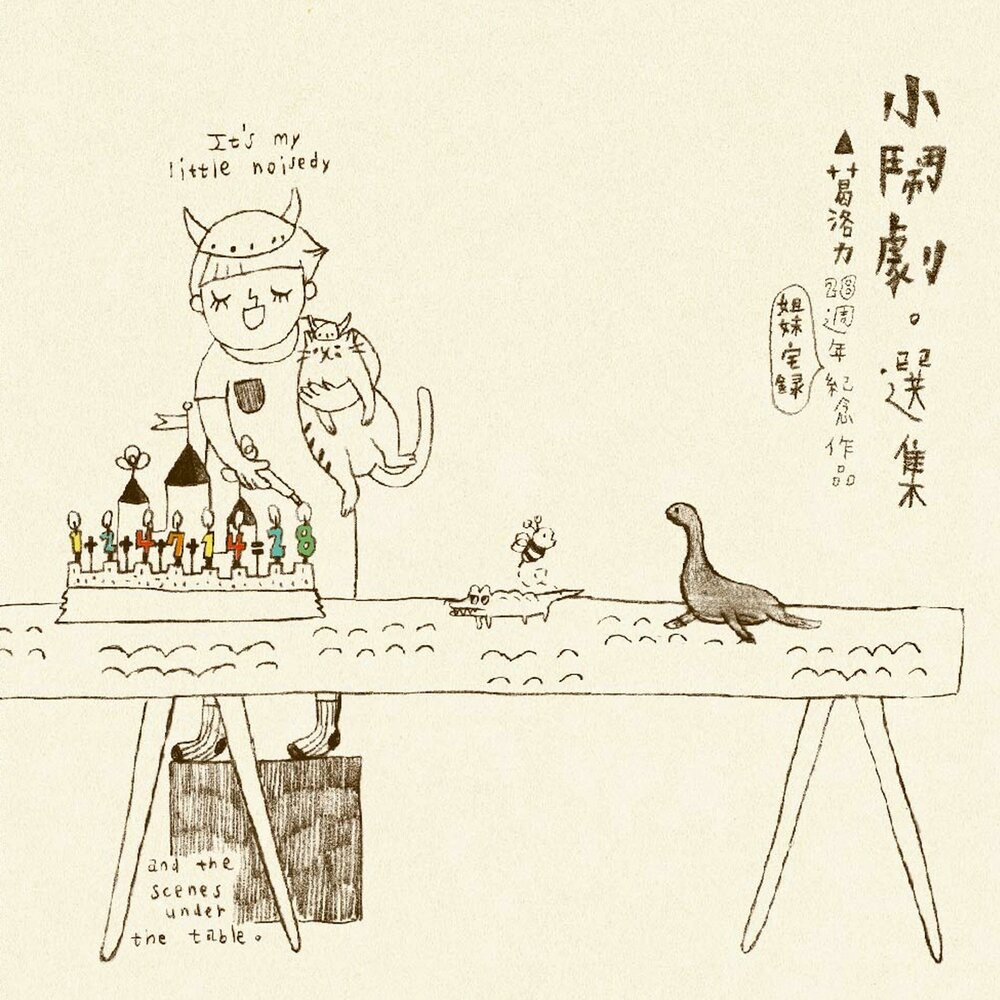 It's my
little noisedy
小鬧劇。選集
▲葛洛力28週年紀念作品
姐妹宅録
1+2+4+7+14=28
and the
scenes
under
the table。